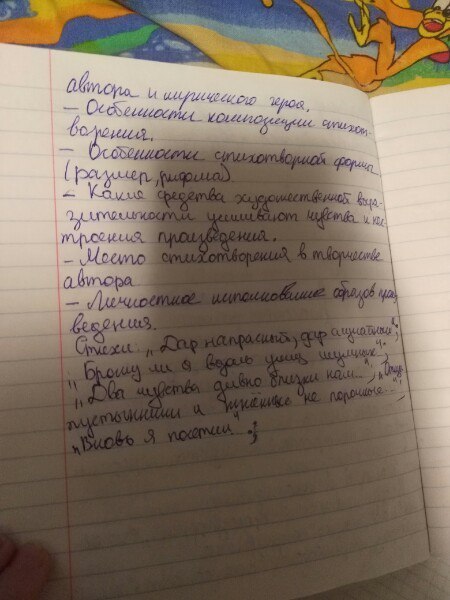 автора и лирического героя.
– Особенности композиции стихот-
ворения.
– Особенности стихотворной формы
(размер, рифма)
– Какие средства художественной выра-
зительности усиливают чувства и нас-
троения произведения.
– Место стихотворения в творчестве
автора
– Личностное истолкование образов произ
ведения.
Стихи: „Дар напрасный, дар случайный",
„Брожу ли я вдоль улиц шумных",
„Два чувства дивно близки нам...", „Отцы
пустынники и жёны не порочные...",
„Вновь я посетил"